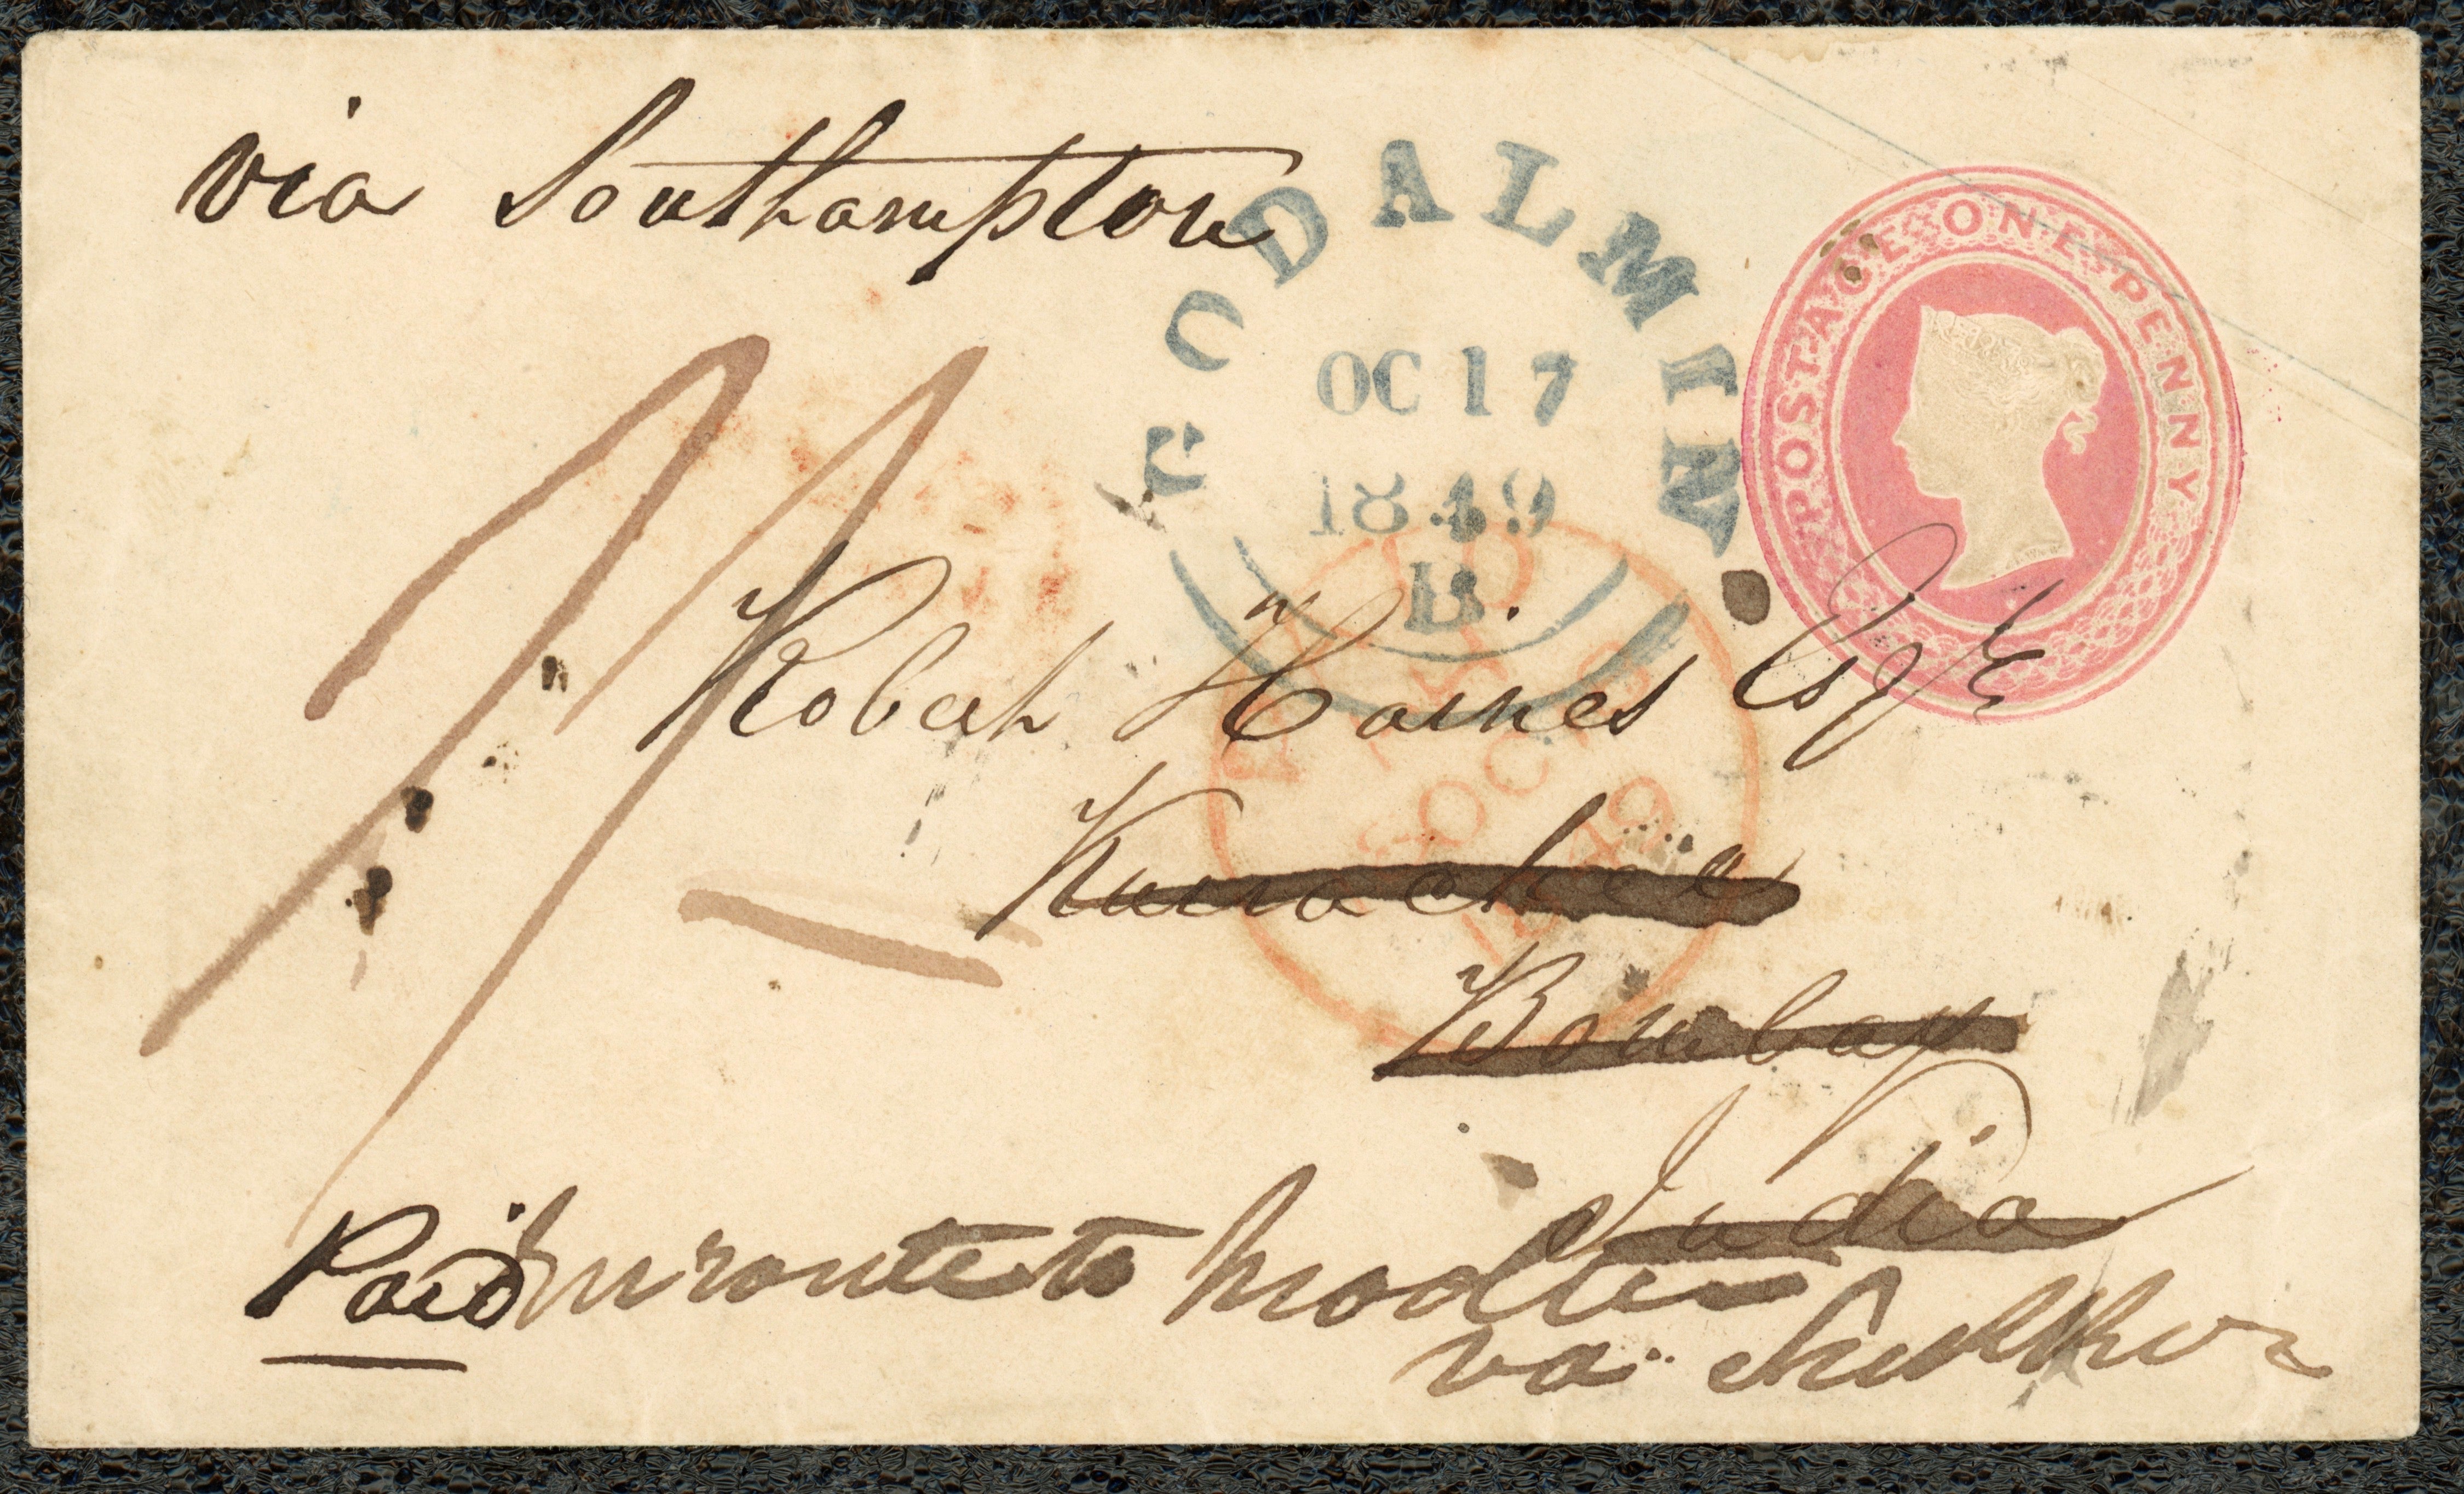 via Southampton
GODALMING
OC 17
1849
B
POSTAGE ONE PENNY
PAID
OC 18
1849
Robert Haines Esqre
Kurrachee
Bombay
India
Paid
en route to Mooltan
via Sukkur